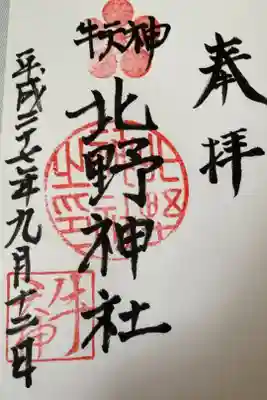 奉拝
牛天神
北野神社
平成二十七年九月十二日
牛天神